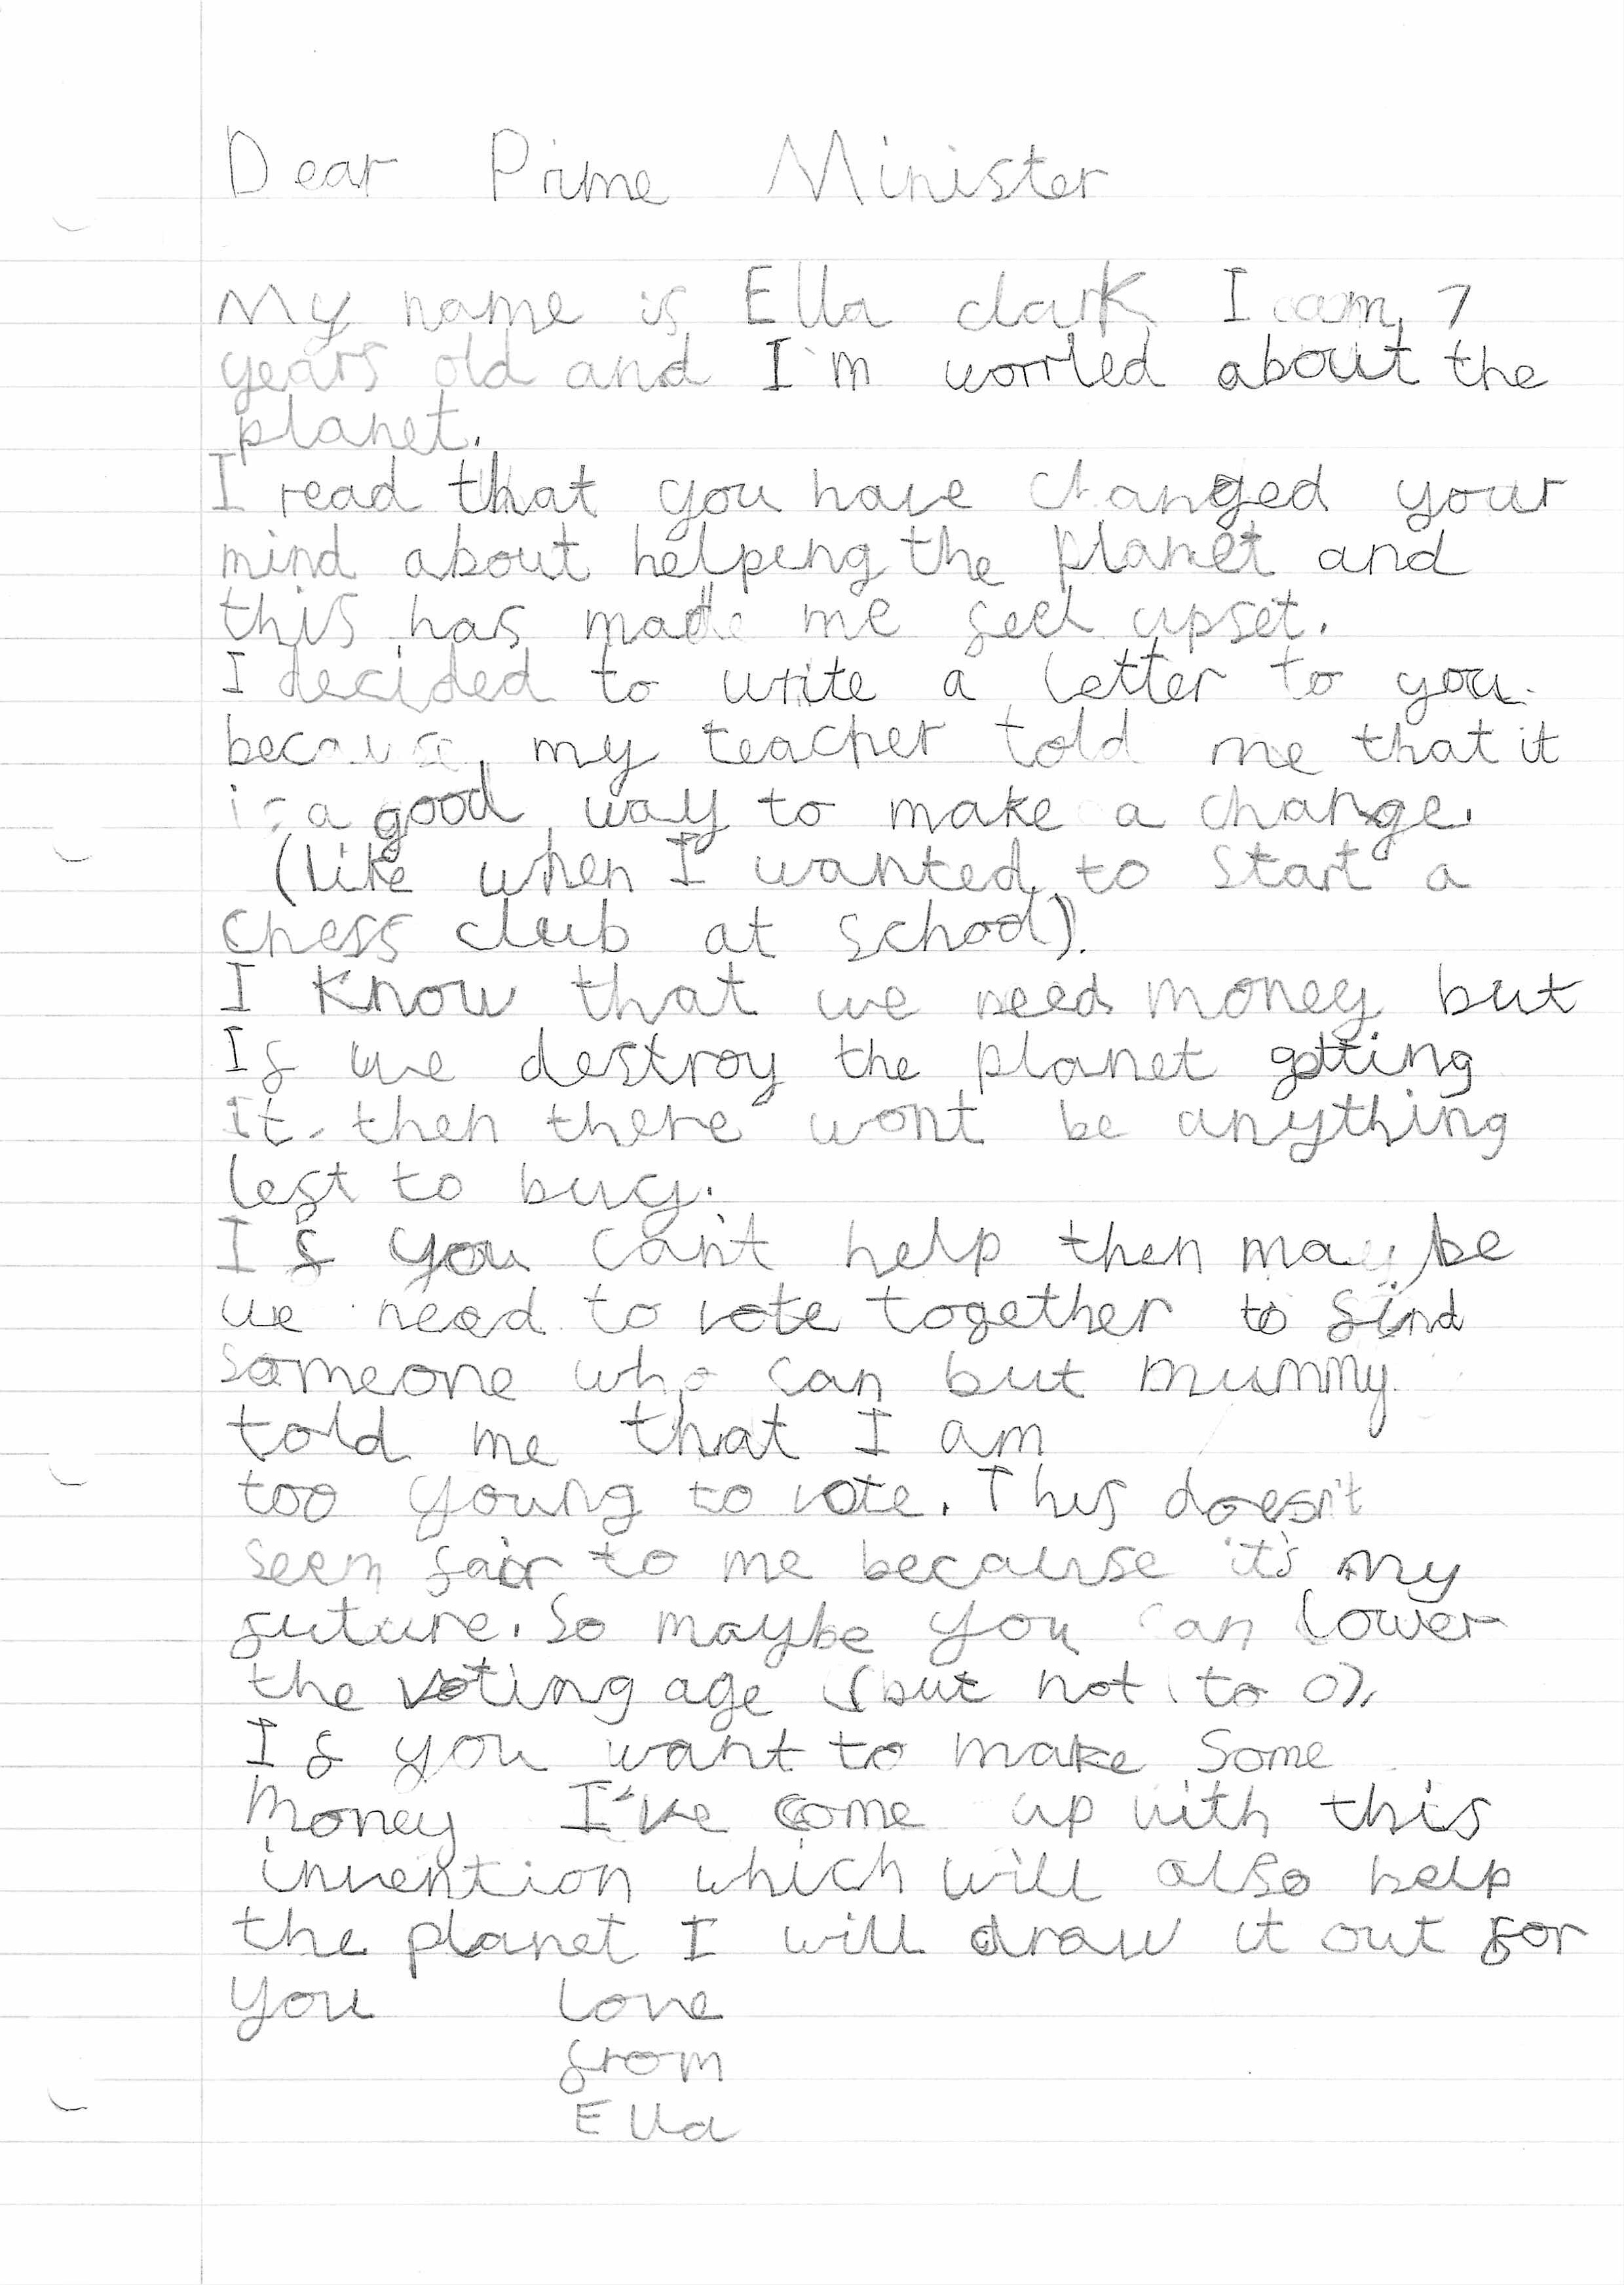 Dear Prime Minister
My name is Ella clark I am 7
years old and I'm worried about the
planet.
I read that you have changed your
mind about helping the planet and
this has made me feel upset.
I decided to write a letter to you
because my teacher told me that it
is a good way to make a change.
(like when I wanted to start a
chess club at school).
I know that we need money but
If we destroy the planet getting
it then there wont be anything
left to buy.
If you can't help then maybe
we need to vote together to find
someone who can but mummy
told me that I am
too young to vote. This doesn't
seem fair to me because it's my
future. So maybe you can lower
the voting age (but not to 0).
If you want to make some
money I've come up with this
invention which will also help
the planet I will draw it out for
you love
from
Ella